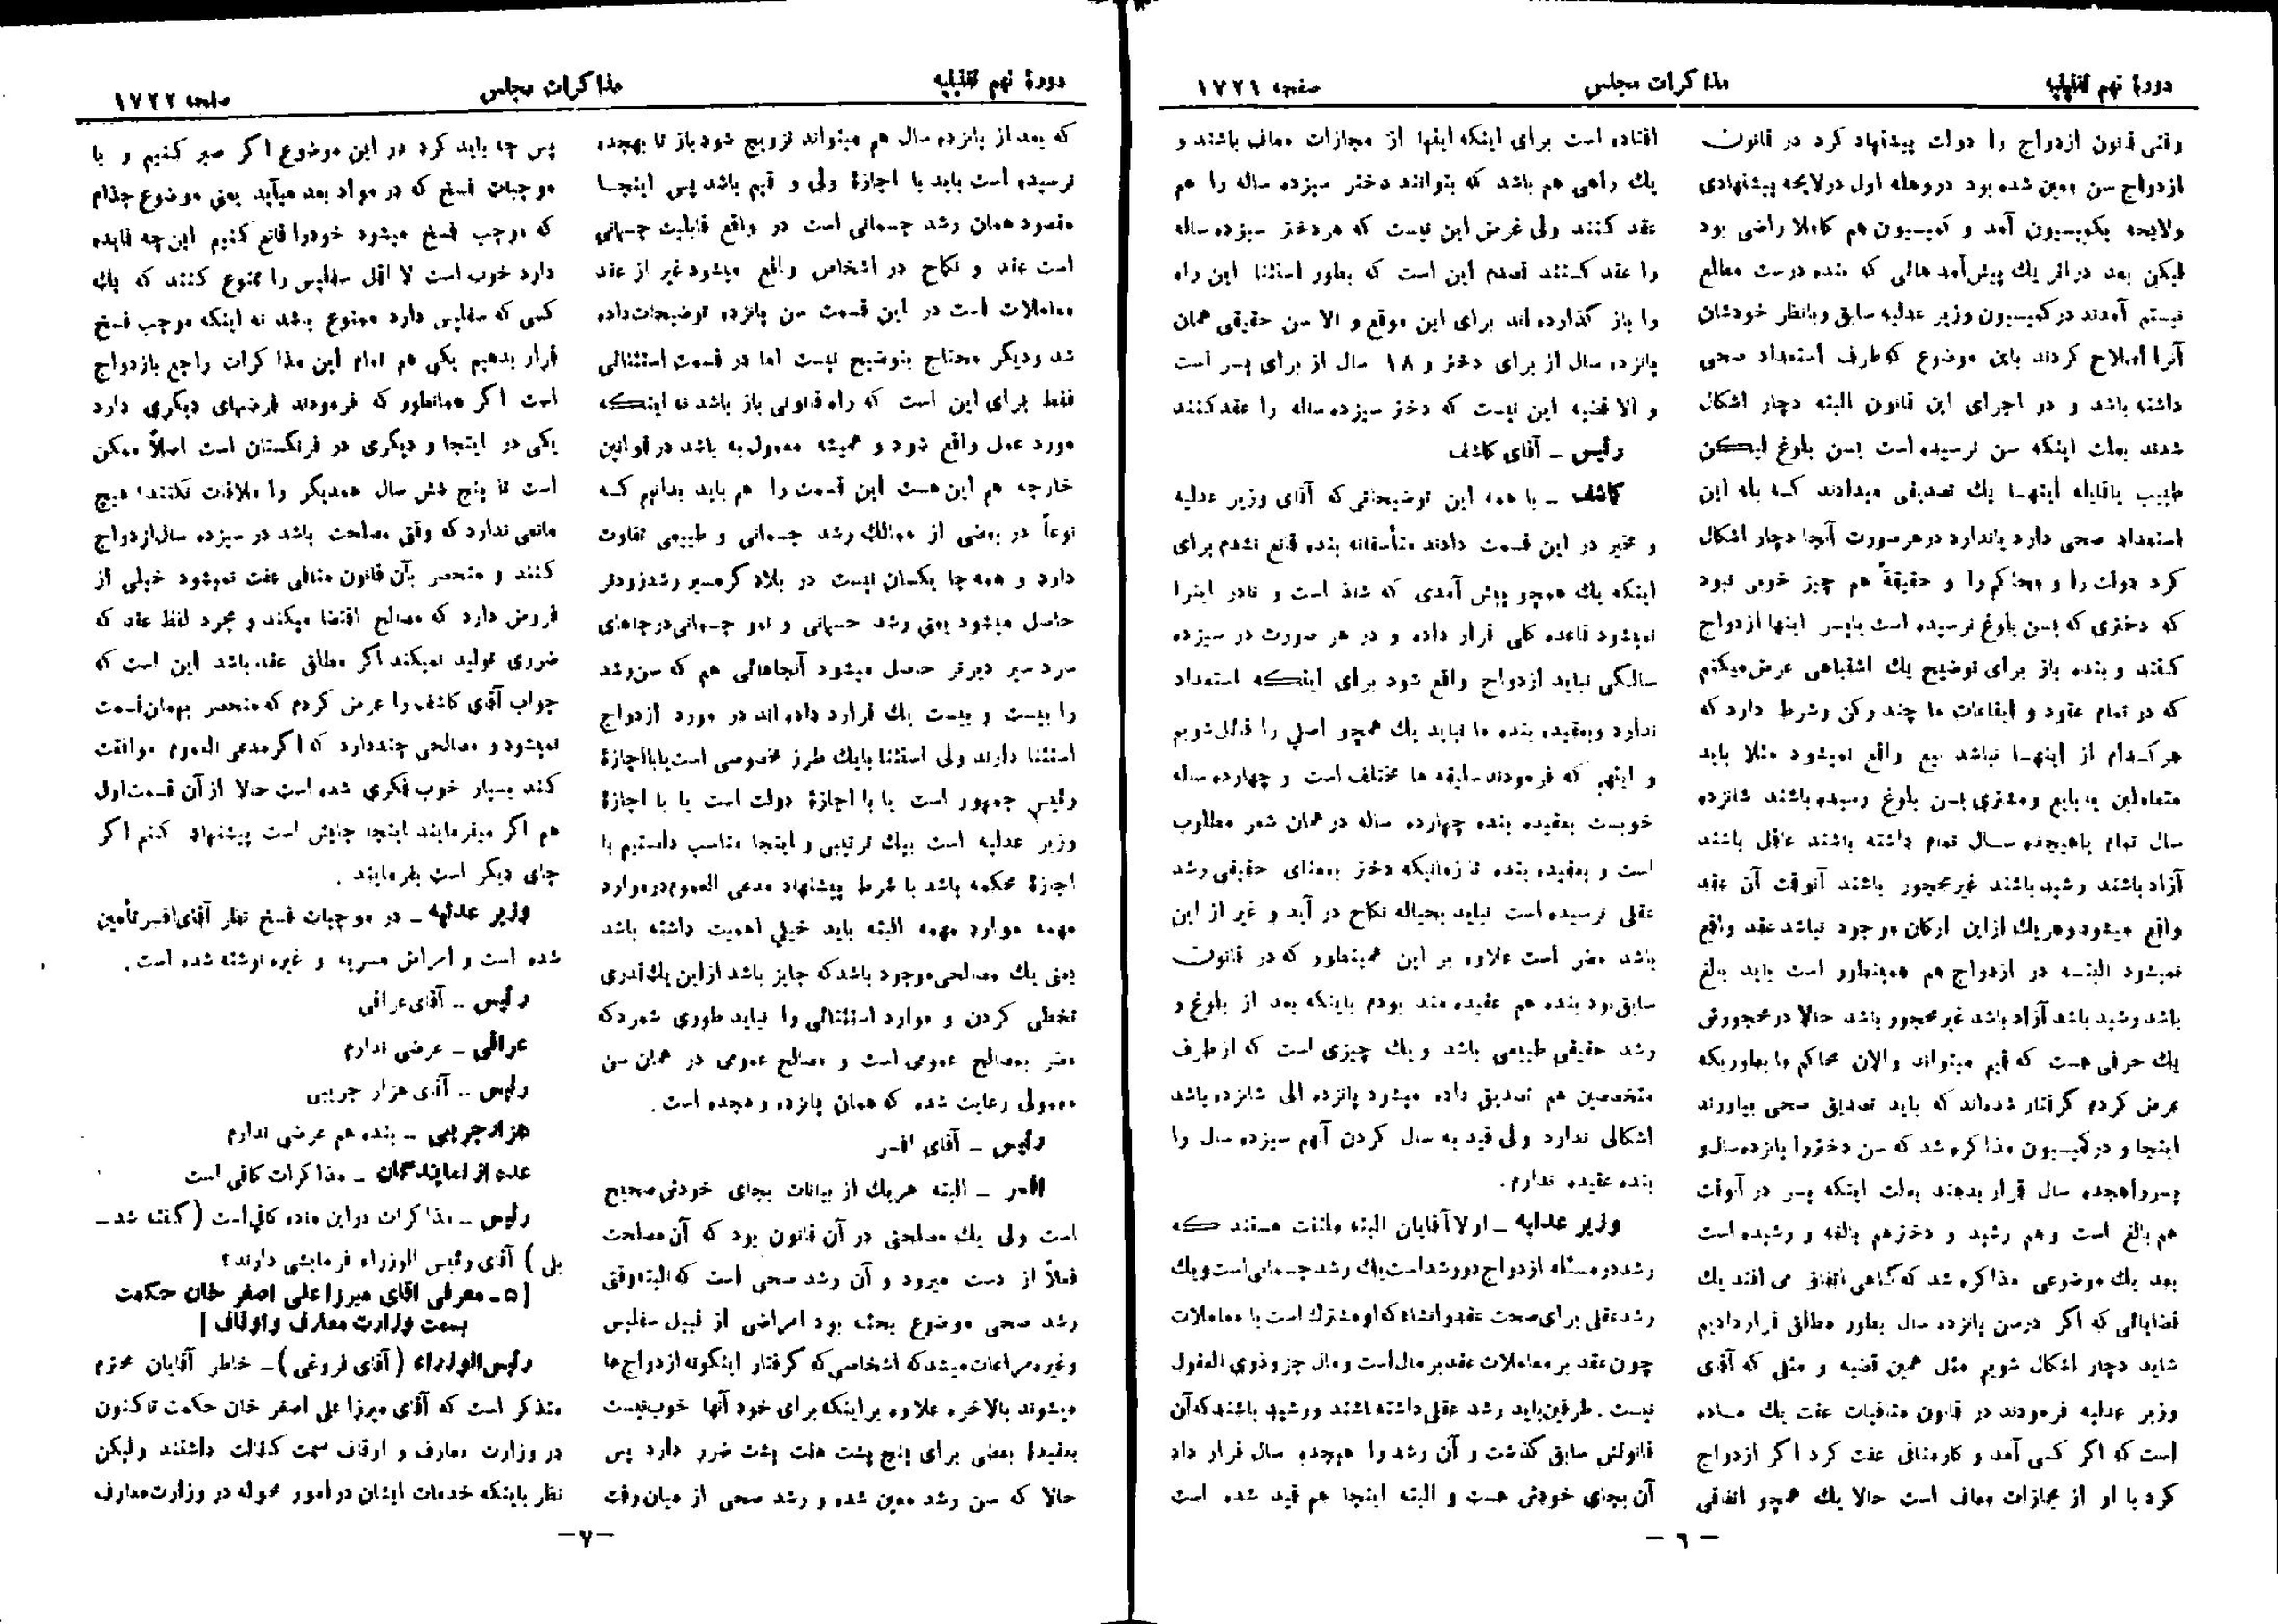 دورهٔ نهم تقنینیه
مذاکرات مجلس
صفحه ۱۷۲۱
وقتی قانون ازدواج را دولت پیشنهاد کرد در قانون
ازدواج سن معین شده بود در وهله اول در لایحه پیشنهادی
ولایحه بکمیسیون آمد و کمیسیون هم کاملا راضی بود
لیکن بعد در اثر یك پیش‌آمدهائی که بنده درست مطلع
نیستم آمدند در کمیسیون وزیر عدلیه سابق و بانظر خودشان
آنرا اصلاح کردند باین موضوع که طرف استعداد صحی
داشته باشد و در اجرای این قانون البته دچار اشکال
شدند بعلت اینکه سن نرسیده است بسن بلوغ لیکن
طبیب یا قابله اینها یك تصدیقی میدادند که بله این
استعداد صحی دارد یا ندارد در هر صورت آنجا دچار اشکال
کرد دولت را و محاکم را و حقیقةً هم چیز خوبی نبود
که دختری که بسن بلوغ نرسیده است یا پسر اینها ازدواج
کنند و بنده باز برای توضیح یك اشتباهی عرض میکنم
که در تمام عقود و ایقاعات ما چند رکن و شرط دارد که
هر کدام از اینها نباشد بیع واقع نمیشود مثلا باید
متعاملین یا بایع و مشتری بسن بلوغ رسیده باشند شانزده
سال تمام یا هیجده سال تمام داشته باشند عاقل باشند
آزاد باشند رشید باشند غیر محجور باشند آنوقت آن عقد
واقع میشود و هر یك از این ارکان موجود نباشد عقد واقع
نمیشود البته در ازدواج هم همینطور است باید بالغ
باشد رشید باشد آزاد باشد غیر محجور باشد حالا در محجورش
یك حرفی هست که قیم میتواند والان محاکم ما بطوریکه
عرض کردم گرفتار شده‌اند که باید تصدیق صحی بیاورند
اینجا و در کمیسیون مذاکره شد که سن دختر را پانزده سال و
پسر را هجده سال قرار بدهند بعلت اینکه پسر در آنوقت
هم بالغ است و هم رشید و دختر هم بالغه و رشیده است
بعد یك موضوعی مذاکره شد که گاهی اتفاق می افتد یك
قضایائی که اگر در سن پانزده سال بطور مطلق قرار دادیم
شاید دچار اشکال شویم مثل همین قضیه و مثلی که آقای
وزیر عدلیه فرمودند در قانون منافیات عفت یك ماده
است که اگر کسی آمد و کار منافی عفت کرد اگر ازدواج
کرد با او از مجازات معاف است حالا یك همچو اتفاقی
افتاده است برای اینکه اینها از مجازات معاف باشند و
یك راهی هم باشد که بتوانند دختر سیزده ساله را هم
عقد کنند ولی غرض این نیست که هر دختر سیزده ساله
را عقد کنند تصدم این است که بطور استثنا این راه
را باز گذارده اند برای این موقع و الا سن حقیقی همان
پانزده سال از برای دختر و ۱۸ سال از برای پسر است
و الا قضیه این نیست که دختر سیزده ساله را عقد کنند
رئیس ــ آقای کاشف
کاشف ــ با همه این توضیحاتی که آقای وزیر عدلیه
و مخبر در این قسمت دادند متأسفانه بنده قانع نشدم برای
اینکه یك همچو پیش آمدی که شاذ است و نادر اینرا
نمیشود قاعده کلی قرار داده و در هر صورت در سیزده
سالگی نباید ازدواج واقع شود برای اینکه استعداد
ندارد و بعقیده بنده ما نباید یك همچو اصلی را قائل شویم
و اینهم که فرمودند سلیقه ها مختلف است و چهارده ساله
خوبست بعقیده بنده چهارده ساله در همان شعر مطلوب
است و بعقیده بنده تا زمانیکه دختر بمعنای حقیقی رشد
عقلی نرسیده است نباید بحباله نکاح در آید و غیر از این
باشد مضر است علاوه بر این همینطور که در قانون
سابق بود بنده هم عقیده مند بودم باینکه بعد از بلوغ و
رشد حقیقی طبیعی باشد و یك چیزی است که از طرف
متخصصین هم تصدیق داده میشود پانزده الی شانزده باشد
اشکالی ندارد ولی قید به سال کردن آنهم سیزده سال را
بنده عقیده ندارم.
وزیر عدلیه ــ اولا آقایان البته ملتفت هستند که
رشد در مسئله ازدواج دو رشد است یك رشد جسمانی است و یك
رشد عقلی برای صحت عقد و انشاء که او مشترك است با معاملات
چون عقد بر معاملات عقد بر مال است و مال جز و ذوی العقول
نیست. طرفین باید رشد عقلی داشته باشند و رشید باشند که آن
قانونش سابق گذشت و آن رشد را هیجده سال قرار داد
آن بجای خودش هست و البته اینجا هم قید شده است
ــ ٦ ــ
دورهٔ نهم تقنینیه
مذاکرات مجلس
صفحه ۱۷۲۲
که بعد از پانزده سال هم میتواند تزویج شود باز تا بهجده
نرسیده است باید با اجازهٔ ولی و قیم باشد پس اینجا
مقصود همان رشد جسمانی است در واقع قابلیت جسمانی
است عقد و نکاح در اشخاص واقع میشود غیر از عقد
معاملات است در این قسمت سن پانزده توضیحات داده
شد و دیگر محتاج بتوضیح نیست اما در قسمت استثنائی
فقط برای این است که راه قانونی باز باشد نه اینکه
مورد عمل واقع شود و همیشه معمول به باشد در قوانین
خارجه هم این هست این قسمت را هم باید بدانیم که
نوعاً در بعضی از ممالك رشد جسمانی و طبیعی تفاوت
دارد و همه جا یکسان نیست در بلاد گرمسیر رشد زودتر
حاصل میشود یعنی رشد جسمانی و نمو جسمانی در جاهای
سردسیر دیرتر حاصل میشود آنجاهائی هم که سن رشد
را بیست و بیست یك قرارد داده اند در مورد ازدواج
استثنا دارند ولی استثنا بایك طرز مخصوصی است یا بااجازهٔ
رئیس جمهور است یا با اجازهٔ دولت است یا با اجازهٔ
وزیر عدلیه است بیك ترتیبی و اینجا مناسب دانستیم با
اجازهٔ محکمه باشد با شرط پیشنهاد مدعی العموم در موارد
مهمه موارد مهمه البته باید خیلی اهمیت داشته باشد
یعنی یك مصالحی موجود باشد که جایز باشد از این یك قدری
تخطی کردن و موارد استثنائی را نباید طوری شمرد که
مضر بمصالح عمومی است و مصالح عمومی در همان سن
معمولی رعایت شده که همان پانزده و هجده است.
رئیس ــ آقای افسر
افسر ــ البته هر یك از بیانات بجای خودش صحیح
است ولی یك مصلحتی در آن قانون بود که آن مصلحت
فعلاً از دست میرود و آن رشد صحی است که البته وقتی
رشد صحی موضوع بحث بود امراضی از قبیل سفلیس
و غیره مراعات میشد که اشخاصی که گرفتار اینگونه ازدواج ها
میشوند بالاخره علاوه بر اینکه برای خود آنها خوب نیست
بعقیدهٔ بعضی برای پنج پشت هفت پشت ضرر دارد پس
حالا که سن رشد معین شده و رشد صحی از میان رفت
پس چه باید کرد در این موضوع اگر صبر کنیم و با
موجبات فسخ که در مواد بعد میآید یعنی موضوع جذام
که موجب فسخ میشود خودرا قانع کنیم این چه فایده
دارد خوب است لااقل سفلیس را ممنوع کنند که یك
کسی که سفلیس دارد ممنوع باشد نه اینکه موجب فسخ
قرار بدهیم یکی هم تمام این مذاکرات راجع بازدواج
است اگر همانطور که فرمودند فرضهای دیگری دارد
یکی در اینجا و دیگری در فرنگستان است اصلاً ممکن
است تا پنج شش سال همدیگر را ملاقات نکنند؛ هیچ
مانعی ندارد که وقتی مصلحت باشد در سیزده سال ازدواج
کنند و منحصر بآن قانون منافی عفت نمیشود خیلی از
فروض دارد که مصالح اقتضا میکند و مجرد لفظ عقد که
ضرری تولید نمیکند اگر مطلق عقد باشد این است که
جواب آقای کاشف را عرض کردم که منحصر بهمان قسمت
نمیشود و مصالحی چند دارد که اگر مدعی العموم موافقت
کند بسیار خوب فکری شده است حالا از آن قسمت اول
هم اگر میفرمایند اینجا جایش است پیشنهاد کنم اگر
جای دیگر است بفرمایند.
وزیر عدلیه ــ در موجبات فسخ نظر آقای افسر تأمین
شده است و امراض مسریه و غیره نوشته شده است.
رئیس ــ آقای عراقی
عراقی ــ عرضی ندارم
رئیس ــ آقای هزار جریبی
هزارجریبی ــ بنده هم عرضی ندارم
عده از نمایندگان ــ مذاکرات کافی است
رئیس ــ مذاکرات در این ماده کافی است (گفته شد ــ
بلی) آقای رئیس الوزراء فرمایشی دارند؟
[۵ ــ معرفی آقای میرزا علی اصغر خان حکمت
بسمت وزارت معارف و اوقاف]
رئیس‌الوزراء (آقای فروغی) ــ خاطر آقایان محترم
متذکر است که آقای میرزا علی اصغر خان حکمت تاکنون
در وزارت معارف و اوقاف سمت کفالت داشتند ولیکن
نظر باینکه خدمات ایشان در امور محوله در وزارت معارف
ــ ۷ ــ